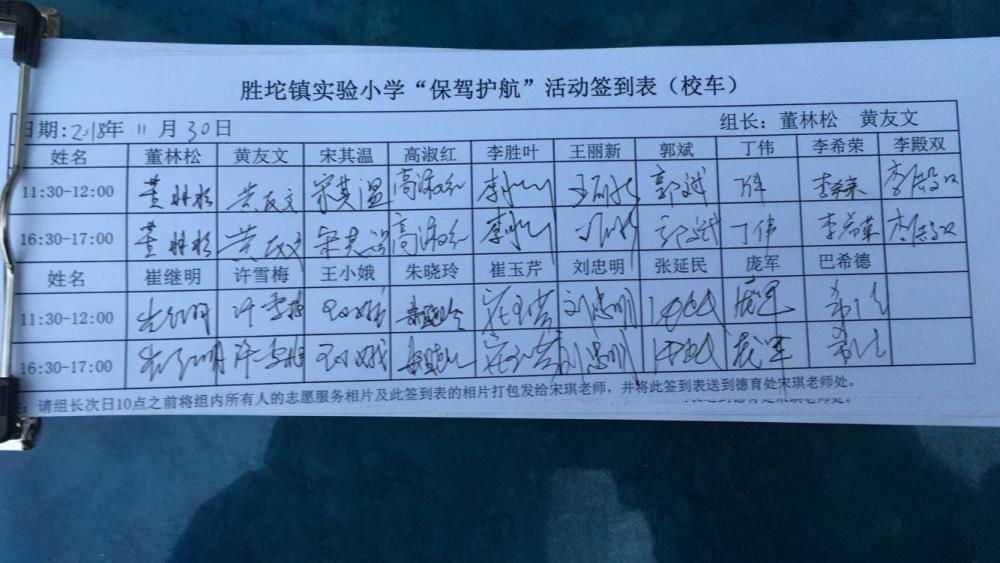 胜坨镇实验小学“保驾护航”活动签到表（校车）
日期:2018年 11 月 30日 组长：董林松 黄友文
姓名 董林松 黄友文 宋其温 高淑红 李胜叶 王丽新 郭斌 丁伟 李希荣 李殿双
11:30-12:00 董林松 黄友文 宋其温 高淑红 李胜叶 王丽新 郭斌 丁伟 李希荣 李殿双
16:30-17:00 董林松 黄友文 宋其温 高淑红 李胜叶 丁伟 李希荣 李殿双
姓名 崔继明 许雪梅 王小娥 朱晓玲 崔玉芹 刘忠明 张延民 庞军 巴希德
11:30-12:00 许雪梅 王小娥 朱晓玲 刘忠明 庞军
16:30-17:00 许雪梅 王小娥 刘忠明 庞军
：请组长次日10点之前将组内所有人的志愿服务相片及此签到表的相片打包发给宋琪老师，并将此签到表送到德育处宋琪老师处。